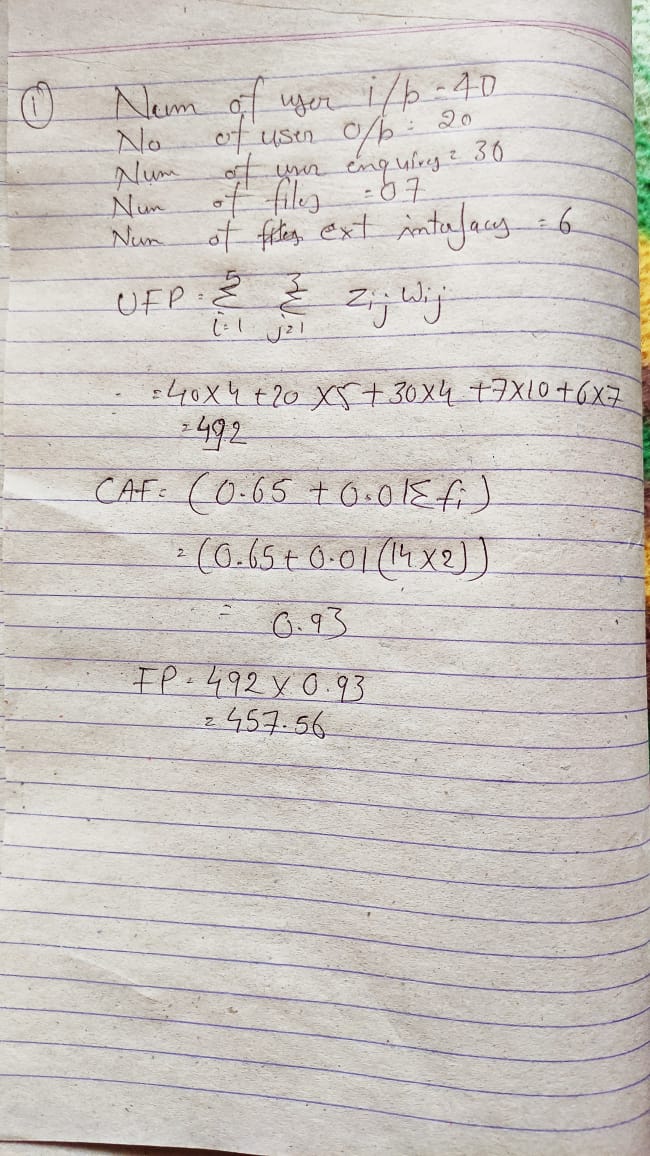 ① Num of user i/p = 40
No of user o/p = 20
Num of user enquires = 30
Num of files = 07
Num of ext interfaces = 6
UFP = 5Σi=1 3Σj=1 Zij Wij
= 40X4 + 20 X5 + 30X4 + 7X10 + 6X7
= 492
CAF = (0.65 + 0.01Σfi)
= (0.65 + 0.01(14X2))
= 0.93
FP = 492 X 0.93
= 457.56